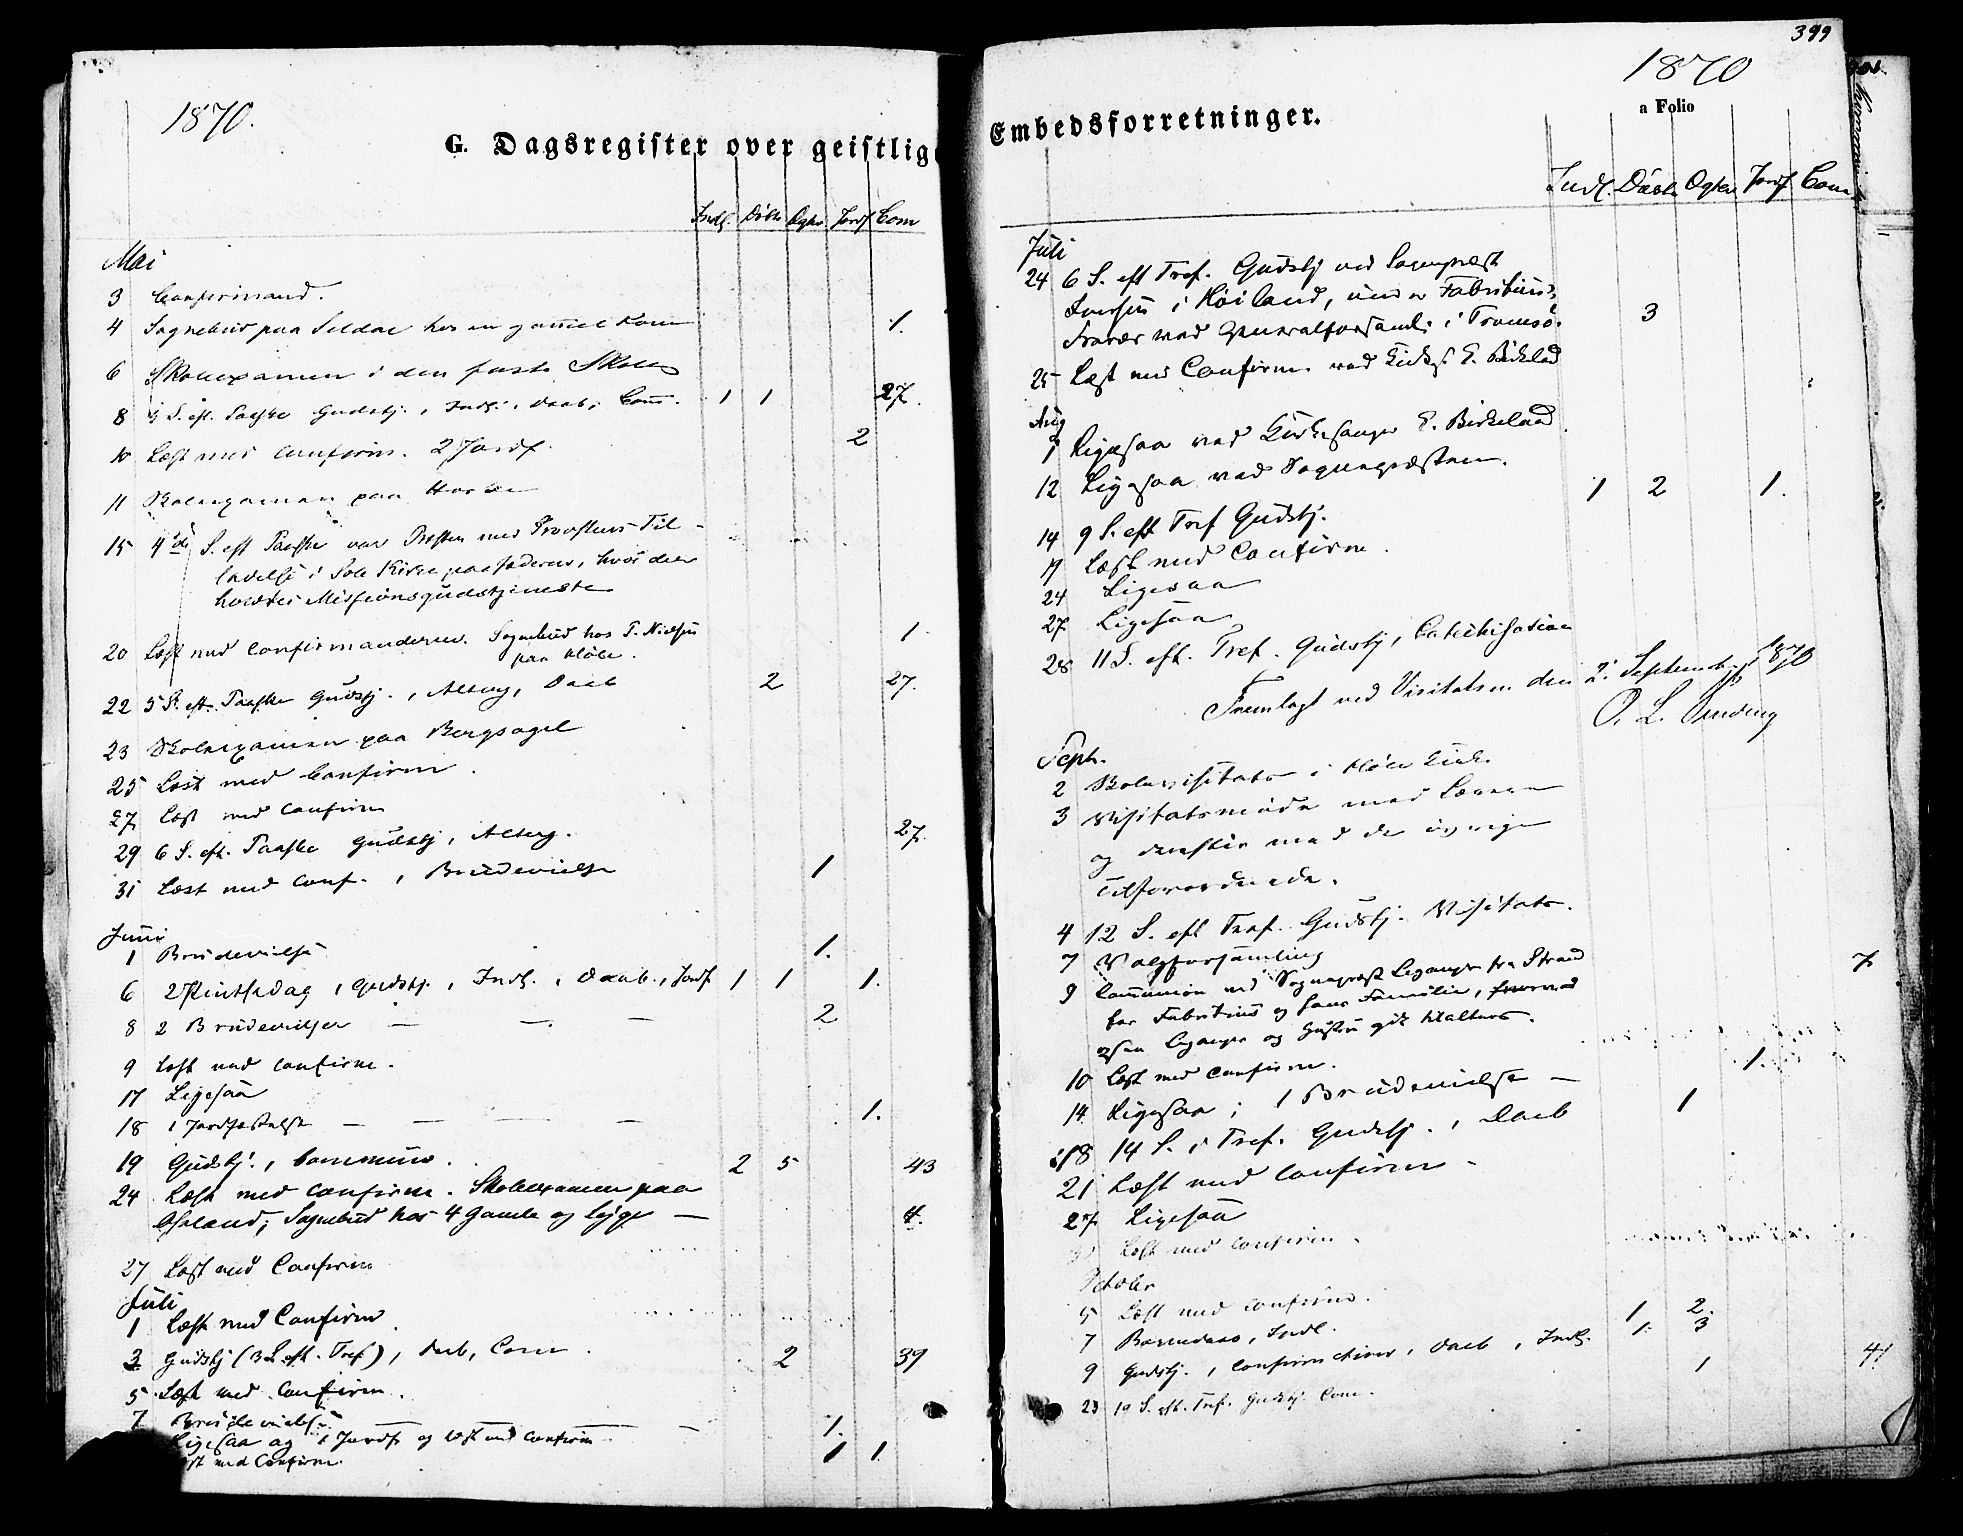 1870.
G. Dagsregister over geistlig
Indl. Døbt Ægtev Jordf Com
Mai
3 Confirmand.
4 Sognebud paa hos en gammel Kone 1.
6 Skoleexamen i den faste Skole
8 3 S. eft. Paaske Gudstj., Indl., Daab, Com. 1 1 27.
10 Læst med Confirm. 2 Jordf. 2
11 Skolexamen paa
15 4de S. eft Paaske var Præsten med Provstens Til-
ladelse i Sole Kirke paa Jæderen, hvor der
holdtes Missionsgudstjeneste
20 Læst med Confirmanderne. Sognebud hos T. Nielsen 1.
paa Høle.
22 5 S. eft. Paaske Gudstj., Alterg, Daab 2 27.
23 Skolexamen paa Bergsagel
25 Læst med Confirm.
27 Læst med Confirm
29 6 S. eft. Paaske Gudstj, Alterg. 27.
31 Læst med Conf., Brudevielse 1
Juni
1 Brudevielse 1.
6 2 Pintsedag, Gudstj., Indl., Daab., Jordf 1 1 1.
8 2 Brudevielser — — — 2
9 Læst med Confirm.
17 Ligesaa
18 1 Jordfæstelse — — — — 1.
19 Gudstj., Commun. 2 5 43
24 Læst med Confirm. Skolexamen paa
Aseland; Sognebud hos 4 Gamle og Syge — 4.
27 Læst med Confirm
Juli
1 Læst med Confirm
3 Gudstj (3 S. eft. Tref), Daab, Com. 2 39
5 Læst med Confirm.
7 Brudevielse — 1.
Ligesaa og 1 Jordf og læst med Confirm 1 1
med Confirm.
399
1870
Embedsforretninger.
a Folio
Indl. Daab. Ægtev Jordf Com
Juli
24 6 S. eft Tref. Gudstj ved Sognepræst
Iversen i Høiland, under Fabritius's
Fravær ved Generalforsaml. i Tromsø. 3
25 Læst med Confirm. ved Kirkes. E. Birkeland
Aug
1 Ligesaa ved Kirkesanger E. Birkeland
12 Ligesaa ved Sognepræsten.
14 9 S. eft Tref Gudstj. 1 2 1.
17 Læst med Confirm.
24 Ligesaa
27 Ligesaa
28 11 S. eft. Tref. Gudstj, Catechisation
Fremlagt ved Visitatsen den 2. Septemb 1870
Septr.
2 Skolevisitats i Høle Kirke
3 Visitatsmøde med Lærerne
og derefter med de øvrige
Tilforordnede.
4 12 S. eft Tref. Gudstj. Visitats.
7 Valgforsamling
9 Communion ved Sognepræst Leganger fra Strand 7
for Fabritius og hans Familie,
ogsaa Leganger og Hustru gik til Alters.
10 Læst med Confirm.
14 Ligesaa; 1 Brudevielse — 1.
18 14 S. e Tref. Gudstj., Daab 1
21 Læst med Confirm
27 Ligesaa
Læst med Confirm
October
5 Læst med Confirm.
7 Barnedaab, Indl. 1. 2.
9 Gudstj., Confirmation, Daab, Indl. 1. 3
23 19 S. eft. Tref. Gudstj. Com. 1 41